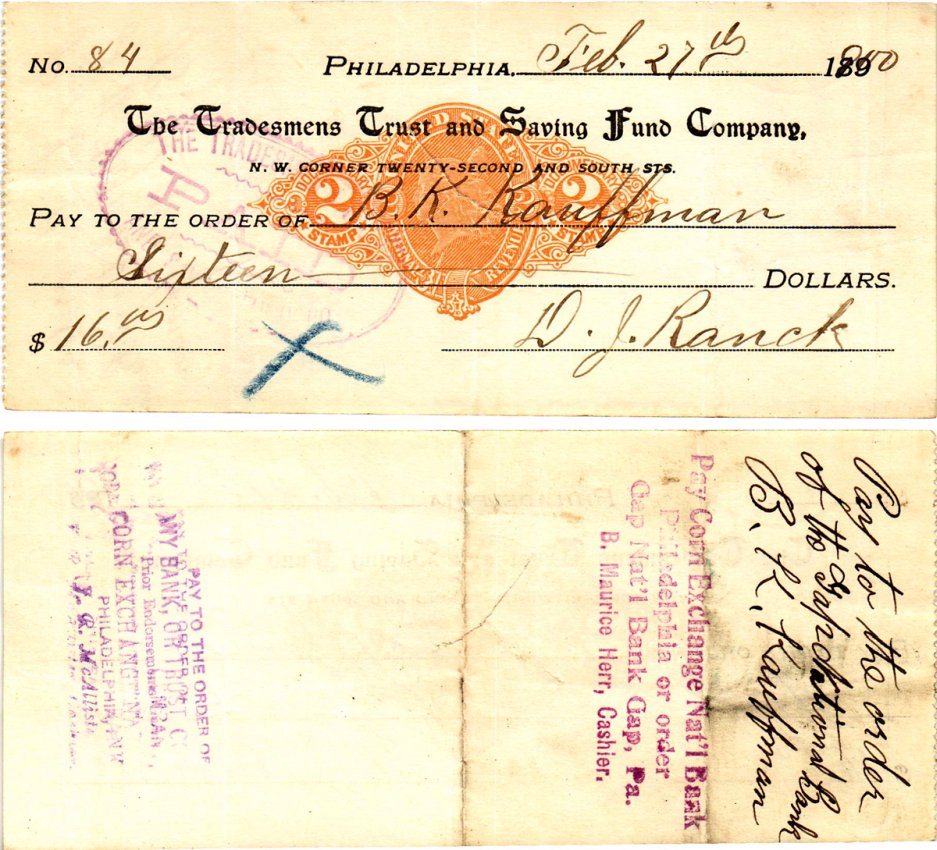 No. 84 PHILADELPHIA, Feb. 27th 1900
The Tradesmens Trust and Saving Fund Company,
N. W. CORNER TWENTY-SECOND AND SOUTH STS.
PAY TO THE ORDER OF B. K. Kauffman
Sixteen DOLLARS.
$ 16.00 D. J. Ranck
THE TRADES
PAID
2 2
STAMP STAMP
Pay to the order
of the Gap National Bank
B. K. Kauffman
Pay Corn Exchange Nat'l Bank
Philadelphia or order
Gap Nat'l Bank Gap, Pa.
B. Maurice Herr, Cashier.
PAY TO THE ORDER OF
ANY BANK, OR TRUST CO
Prior Endorsements
CORN EXCHANGE NAT
PHILADELPHIA